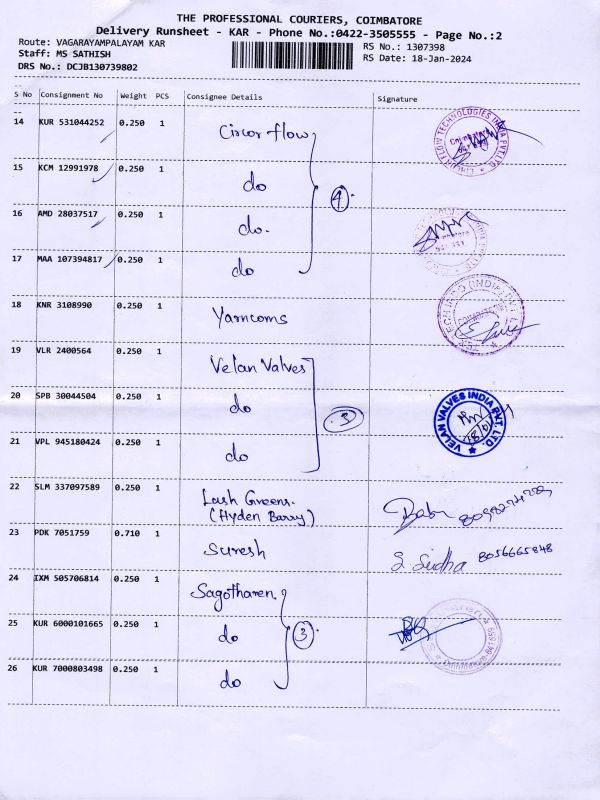 THE PROFESSIONAL COURIERS, COIMBATORE
Delivery Runsheet - KAR - Phone No.:0422-3505555 - Page No.:2
Route: VAGARAYAMPALAYAM KAR
RS No.: 1307398
Staff: MS SATHISH
RS Date: 18-Jan-2024
DRS No.: DCJB130739802
S No Consignment No Weight PCS Consignee Details Signature
14 KUR 531044252 0.250 1 Circor flow
15 KCM 12991978 0.250 1 do
16 AMD 28037517 0.250 1 do.
17 MAA 107394817 0.250 1 do
4
18 KNR 3108990 0.250 1 Yarncoms
19 VLR 2400564 0.250 1 Velan Valves
20 SPB 30044504 0.250 1 do
VELAN VALVES INDIA PVT. LTD.
21 VPL 945180424 0.250 1 do
3
22 SLM 337097589 0.250 1 Lush Greens.
(Hyden Barry)
Babu
23 PDK 7051759 0.710 1 Suresh
S Sudha 8056665848
24 IXM 505706814 0.250 1 Sagotharen.
25 KUR 6000101665 0.250 1 do
3
26 KUR 7000803498 0.250 1 do